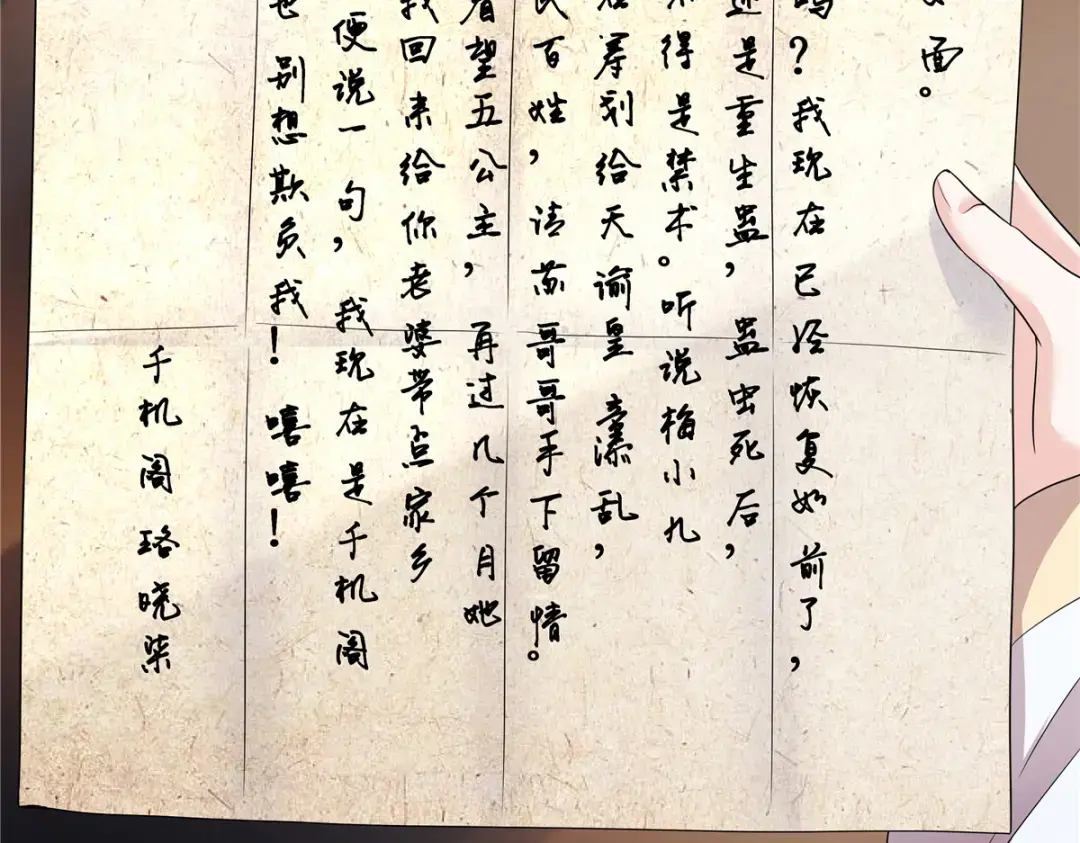 面。
吗？我现在已经恢复如前了，
还是重生蛊，蛊虫死后，
不得是禁术。听说梅小九
在筹划给天谕皇室添乱，
民百姓，请苏哥哥手下留情。
看望五公主，再过几个月她
我回来给你老婆带点家乡
便说一句，我现在是千机阁
也别想欺负我！嘻嘻！
千机阁 珞晓柒